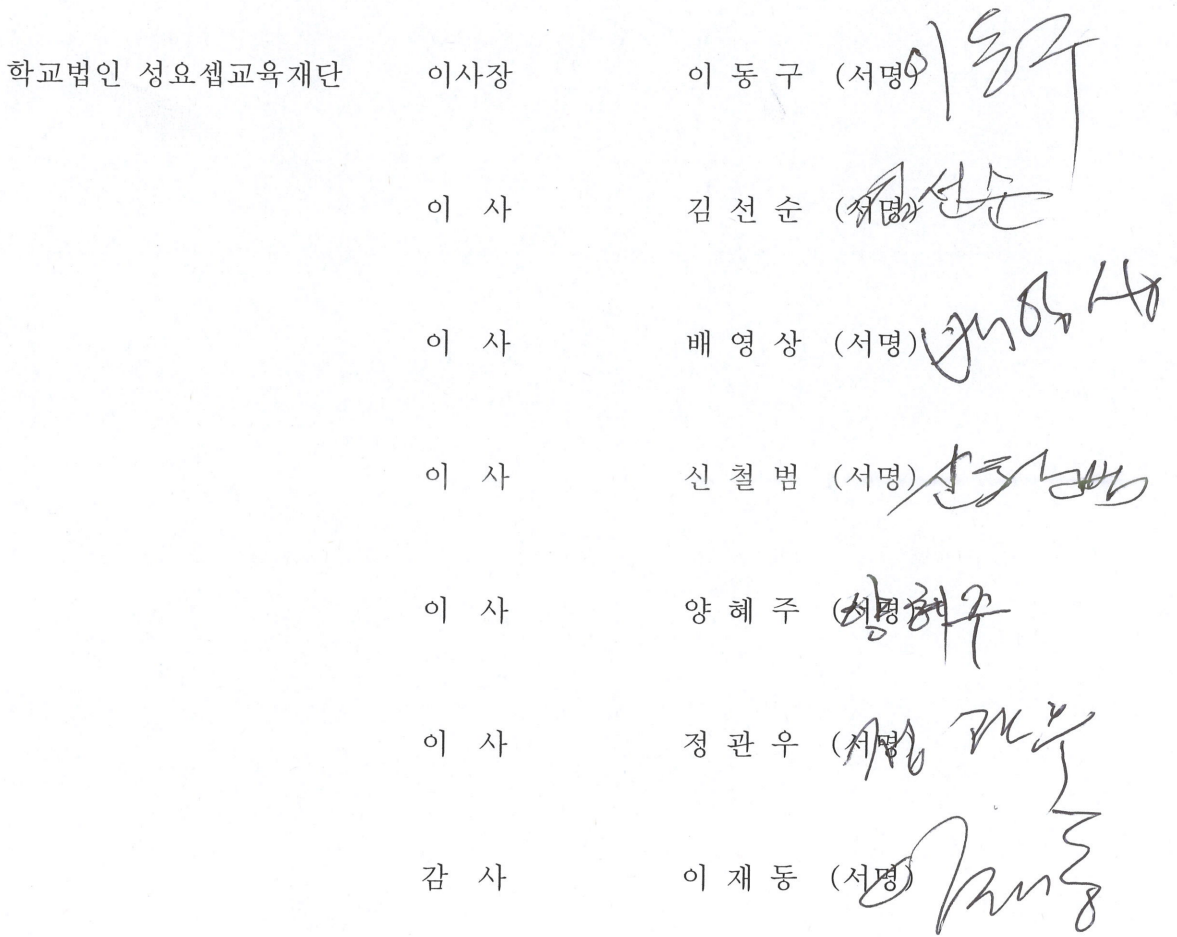 학교법인 성요셉교육재단 이사장 이 동 구 (서명) 이동구
이 사 김 선 순 (서명) 김선순
이 사 배 영 상 (서명) 배영상
이 사 신 철 범 (서명) 신철범
이 사 양 혜 주 (서명) 양혜주
이 사 정 관 우 (서명) 정관우
감 사 이 재 동 (서명) 이재동